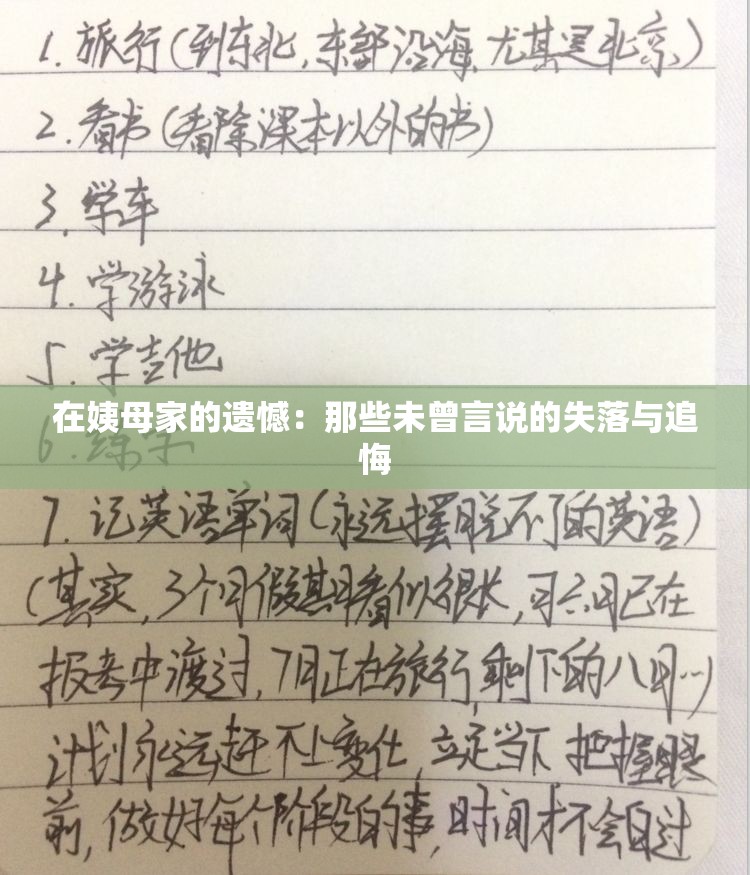 1. 旅行(到东北,东部沿海,尤其是北京)
2. 看书(看除课本以外的书)
3. 学车
4. 学游泳
5. 学吉他
在姨母家的遗憾：那些未曾言说的失落与追
悔
6. 练字
7. 记英语单词(永远摆脱不了的英语)
(其实,3个月假期看似很长,可六月已在
报考中渡过,7月正在旅行,剩下的八月…)
计划永远赶不上变化,立足当下,把握眼
前,做好每个阶段的事,时间才不会白过